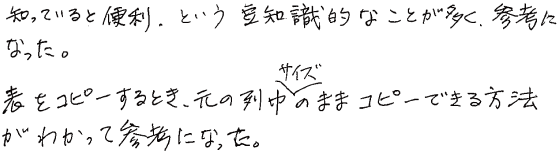 知っていると便利．という豆知識的なことが多く、参考に
なった。
表をコピーするとき、元の列巾サイズのままコピーできる方法
がわかって参考になった。